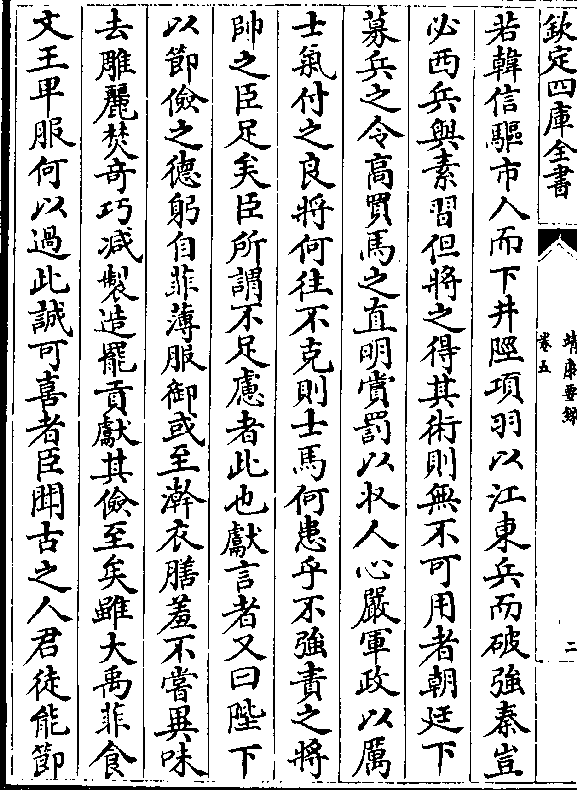 欽定四庫全書
靖康要錄
卷五
二
若韓信驅市人而下井陘項羽以江東兵而破強秦豈
必西兵與素習但將之得其術則無不可用者朝廷下
募兵之令高買馬之直明賞罰以収人心嚴軍政以厲
士氣付之良將何往不克則士馬何患乎不強責之將
帥之臣足矣臣所謂不足慮者此也獻言者又曰陛下
以節儉之德躬自菲薄服御或至澣衣膳羞不嘗異味
去雕麗焚奇巧减製造罷貢獻其儉至矣雖大禹菲食
文王卑服何以過此誠可喜者臣聞古之人君徒能節